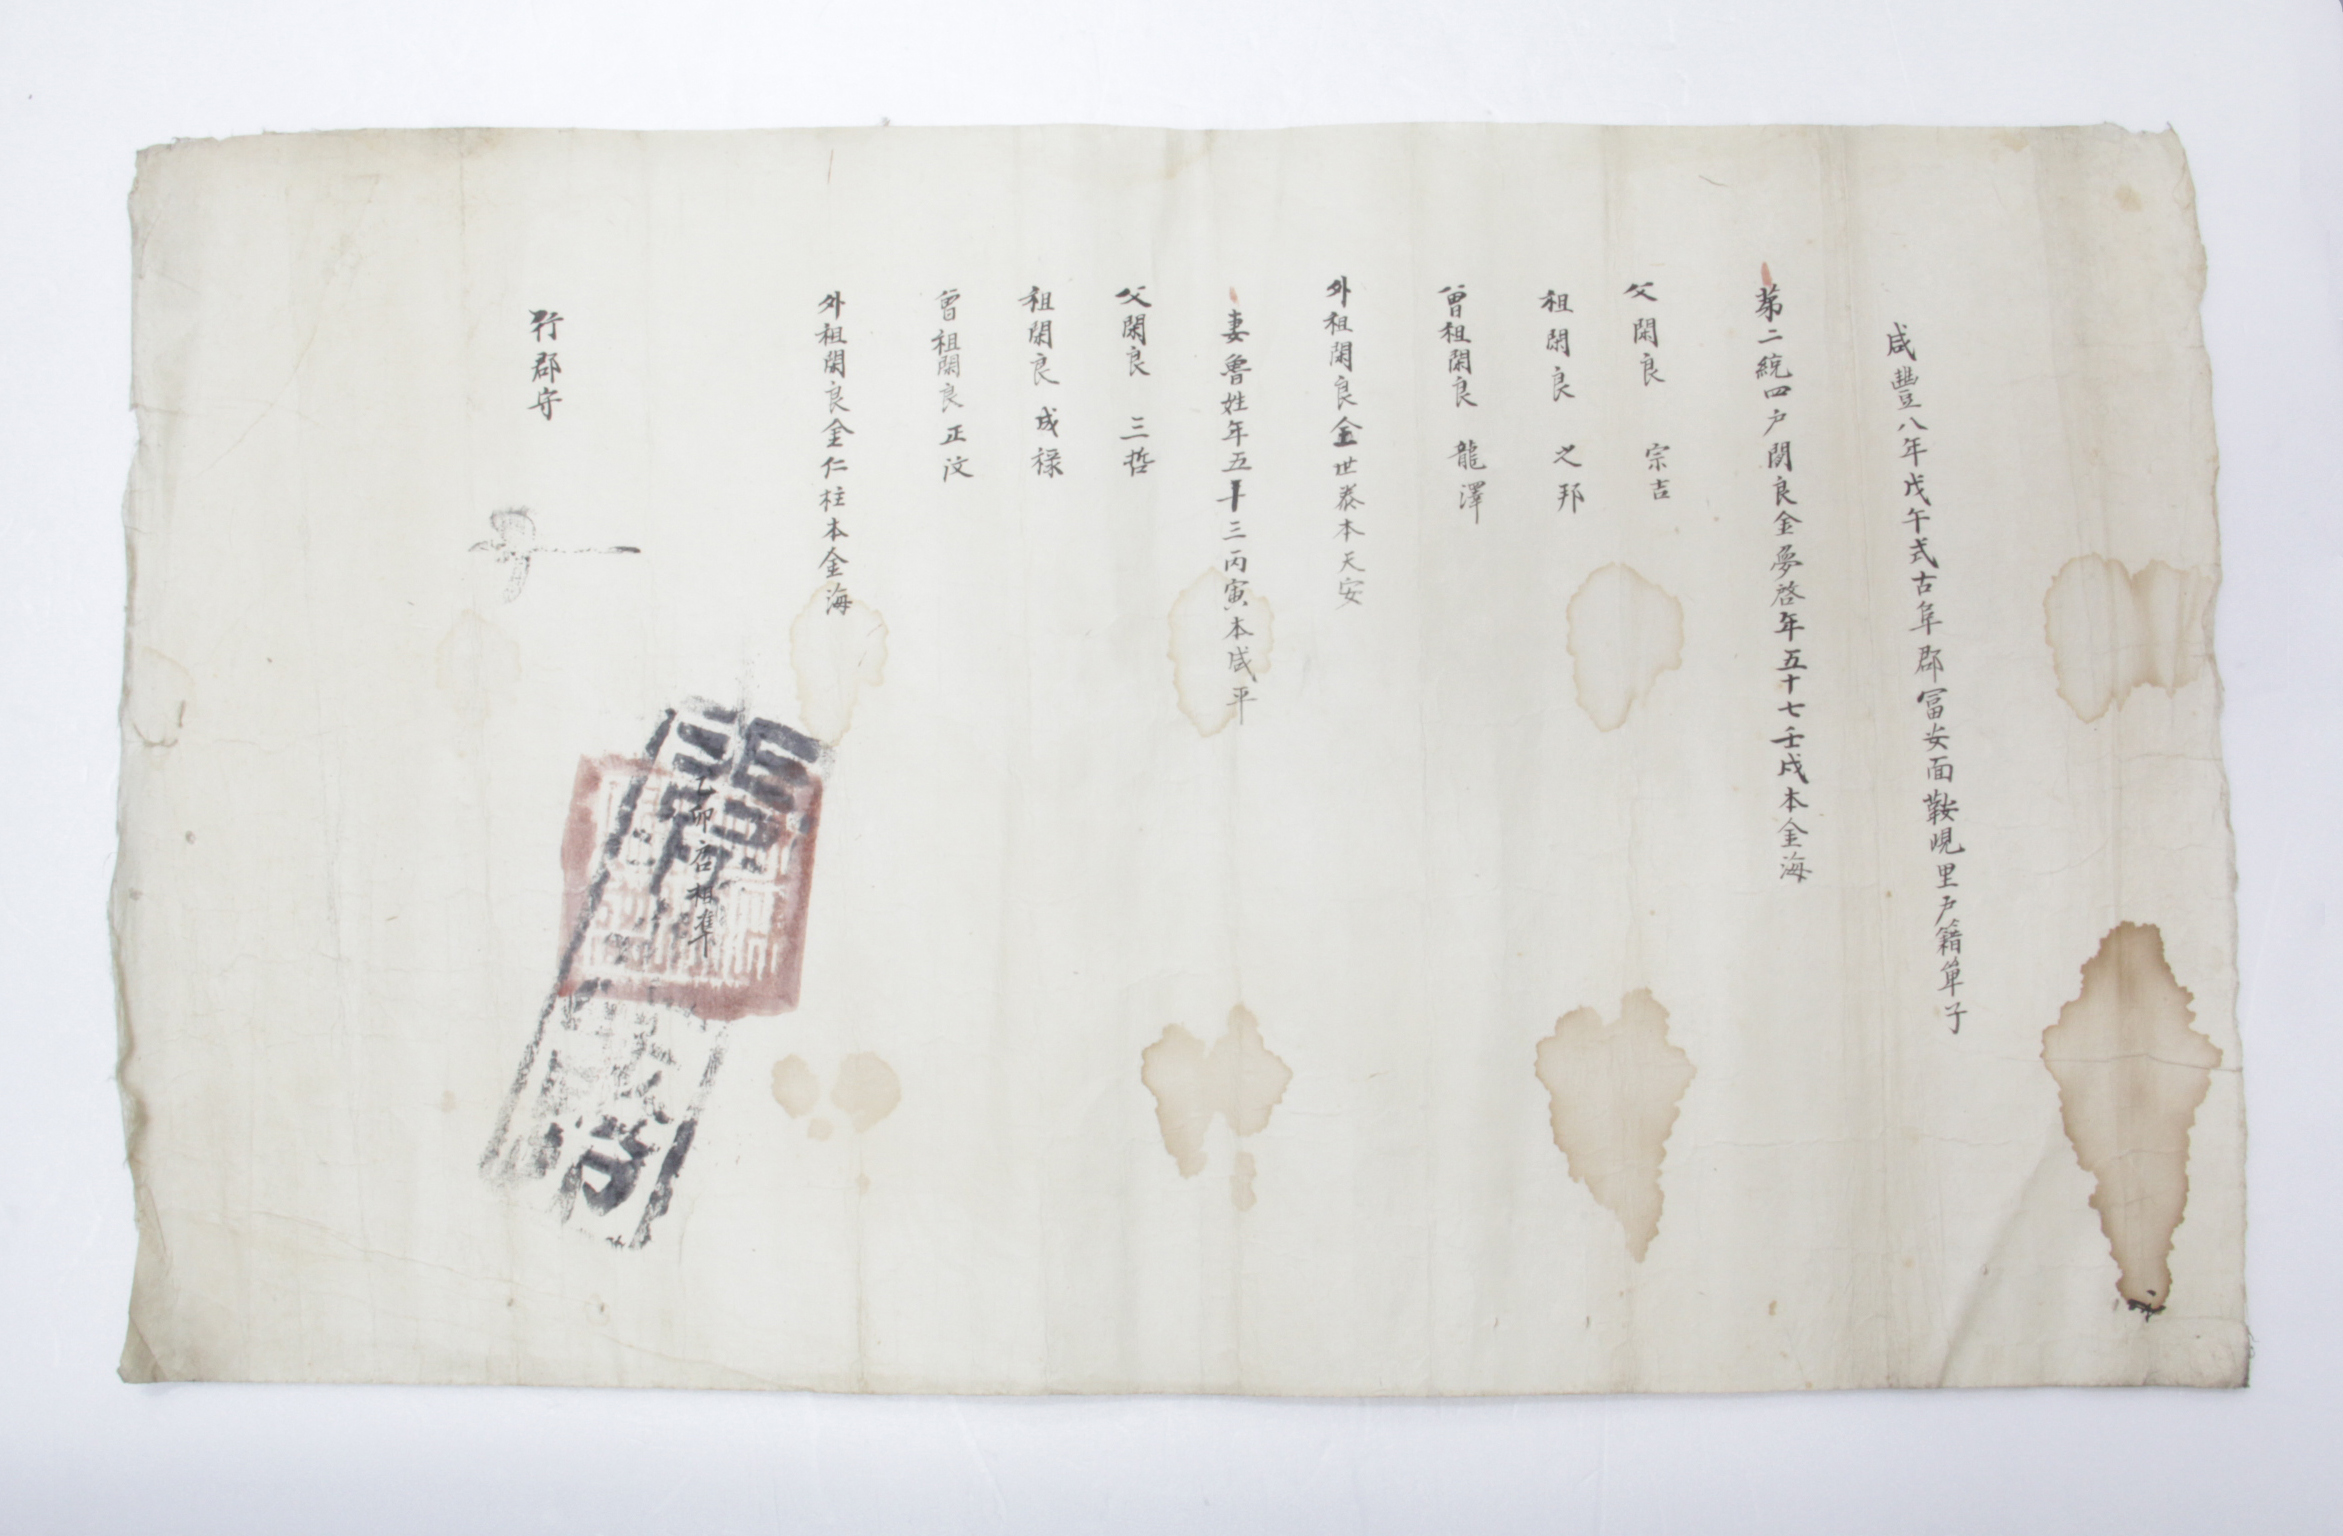 咸豐八年戊午式古阜郡富安面鞍峴里戶籍單子
第二統四戶閑良金夢啓年五十七壬戌本金海
父閑良 宗吉
祖閑良 之邦
曾祖閑良 龍澤
外祖閑良金世泰本天安
妻魯姓年五十三丙寅本咸平
父閑良 三哲
祖閑良 成祿
曾祖閑良正汶
外祖閑良金仁柱本金海
乙卯戶相準
行郡守